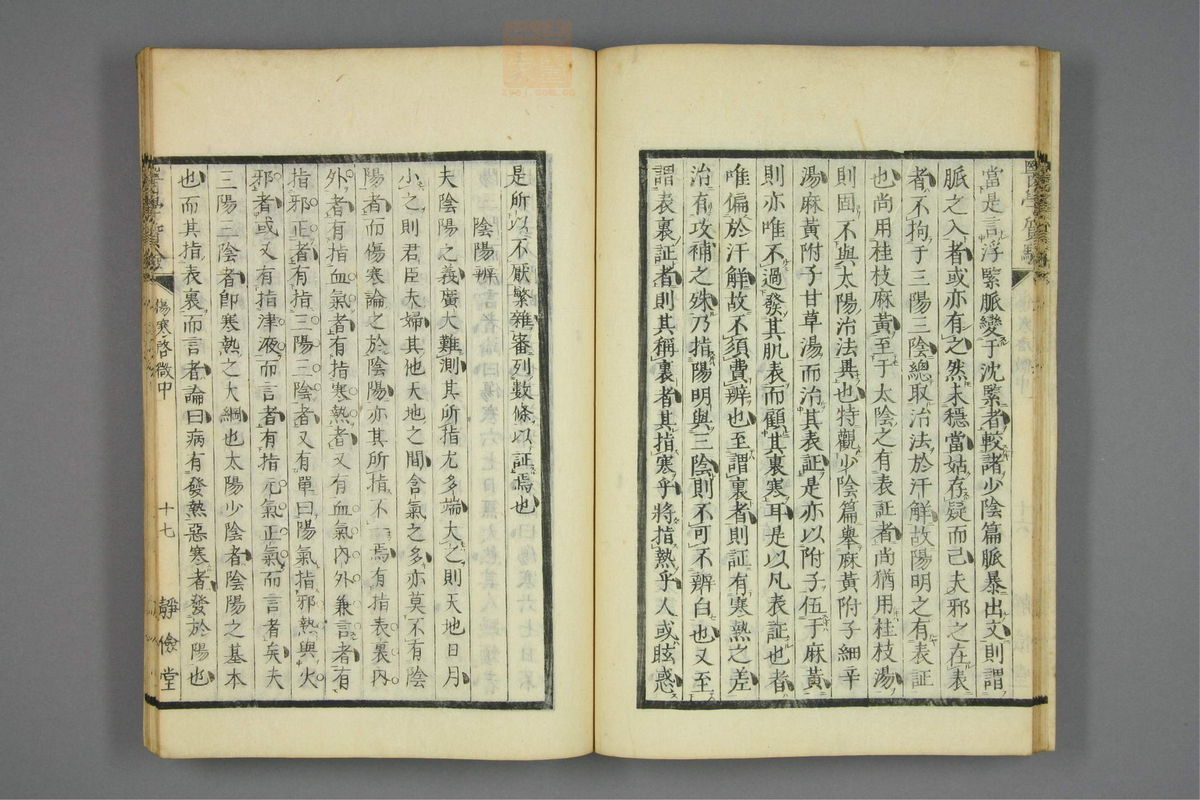 當是言浮緊脈變于沈緊者較諸少陰篇脈暴出文則謂
脈之入者或亦有之然未穩當姑存疑而已夫邪之在表
者不拘于三陽三陰總取治法於汗解故陽明之有表証
也尚用桂枝麻黃至于太陰之有表証者尚猶用桂枝湯
則固不與太陽治法異也特觀少陰篇舉麻黃附子細辛
湯麻黃附子甘草湯而治其表証是亦以附子伍于麻黃
則亦唯不過發其肌表而顧其裏寒耳是以凡表証也者
唯偏於汗解故不須費辨也至謂裏者則証有寒熱之差
治有攻補之殊乃指陽明與三陰則不可不辨白也又至
謂表裏証者則其稱裏者其指寒乎將指熱乎人或眩惑
是所以不厭繁雜審列數條以証焉也
陰陽辨
夫陰陽之義廣大難測其所指尤多端大之則天地日月
小之則君臣夫婦其他天地之間含氣之多亦莫不有陰
陽者而傷寒論之於陰陽亦其所指不一焉有指表裏內
外者有指血氣者有指寒熱者又有血氣內外兼言者有
指邪正者有指三陽三陰者又有單曰陽氣指邪熱與火
邪者或又有指津液而言者有指元氣正氣而言者矣夫
三陽三陰者卽寒熱之大綱也太陽少陰者陰陽之基本
也而其指表裏而言者論曰病有發熱惡寒者發於陽也
傷寒啓微中
十七
靜儉堂